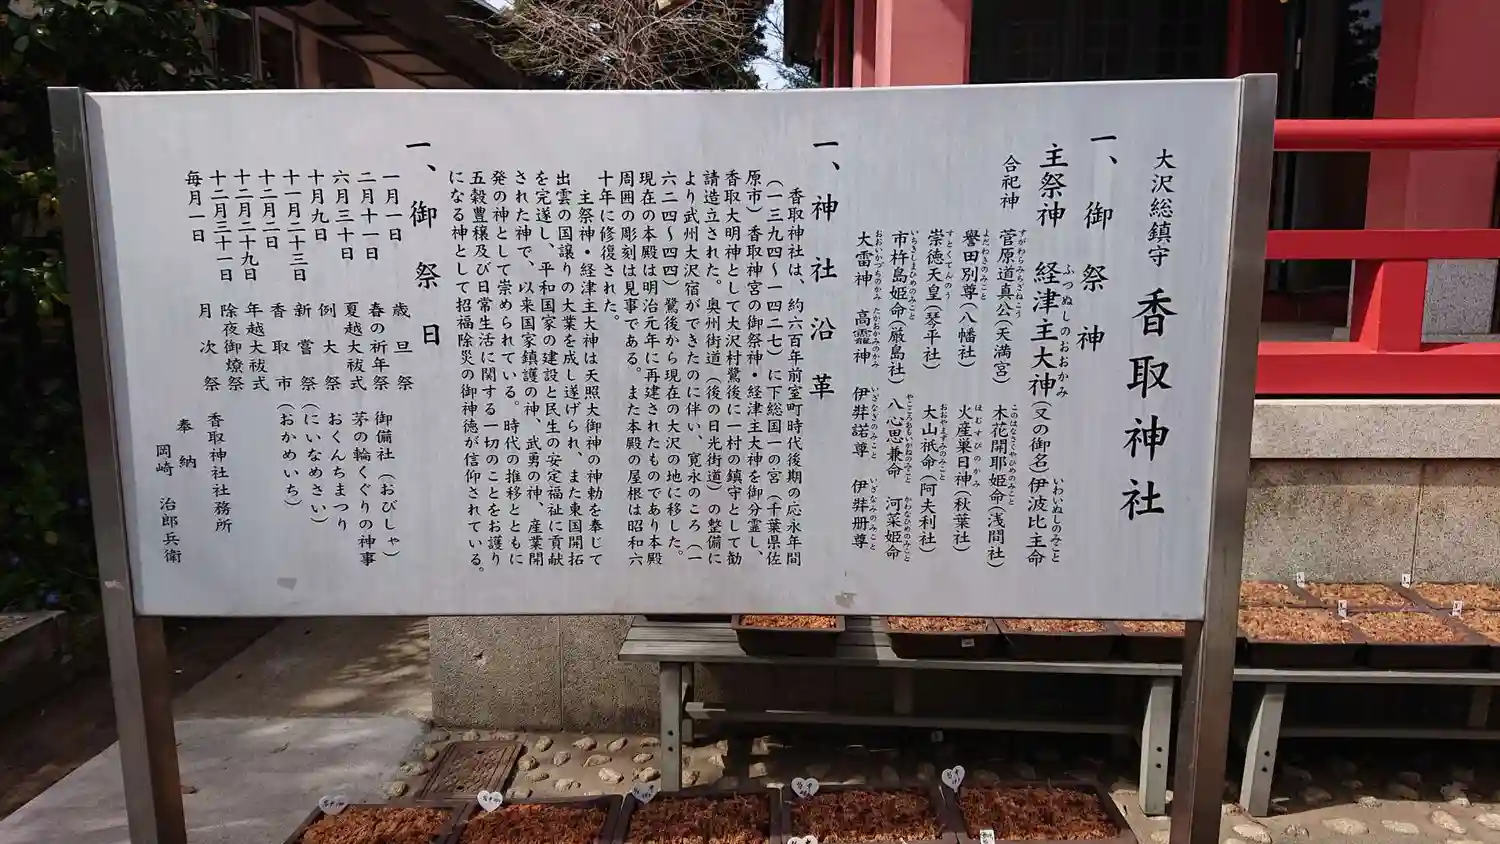 大沢総鎮守 香取神社
一、御祭神
主祭神 経津主大神(又の御名)伊波比主命
ふつぬしのおおかみ いわいぬしのみこと
合祀神 菅原道真公(天満宮) 木花開耶姫命(浅間社)
誉田別尊(八幡社) 火産巣日神(秋葉社)
崇徳天皇(琴平社) 大山祇命(阿夫利社)
市杵島姫命(厳島社) 八心思兼命 河菜姫命
大雷神 高龗神 伊弉諾尊 伊弉册尊
一、神社沿革
香取神社は、約六百年前室町時代後期の応永年間
(一三九四〜一四二七)に下総国一の宮(千葉県佐
原市)香取神宮の御祭神・経津主大神を御分霊し、
香取大明神として大沢村鷺後に一村の鎮守として勧
請造立された。奥州街道(後の日光街道)の整備に
より武州大沢宿ができたのに伴い、寛永のころ(一
六二四〜四四)鷺後から現在の大沢の地に移した。
現在の本殿は明治元年に再建されたものであり本殿
周囲の彫刻は見事である。また本殿の屋根は昭和六
十年に修復された。
主祭神・経津主大神は天照大御神の神勅を奉じて
出雲の国譲りの大業を成し遂げられ、また東国開拓
を完遂し、平和国家の建設と民生の安定福祉に貢献
された神で、以来国家鎮護の神、武勇の神、産業開
発の神として崇められている。時代の推移とともに
五穀豊穣及び日常生活に関する一切のことをお護り
になる神として招福除災の御神徳が信仰されている。
一、御祭日
一月一日 歳旦祭
二月十一日 春の祈年祭 御備社(おびしゃ)
六月三十日 夏越大祓式 茅の輪くぐりの神事
十月九日 例大祭 おくんちまつり
十一月二十三日 新嘗祭(にいなめさい)
十二月二日 香取市(おかめいち)
十二月二十九日 年越大祓式
十二月三十一日 除夜御燎祭
毎月一日 月次祭
香取神社社務所
奉納
岡崎 治郎兵衛